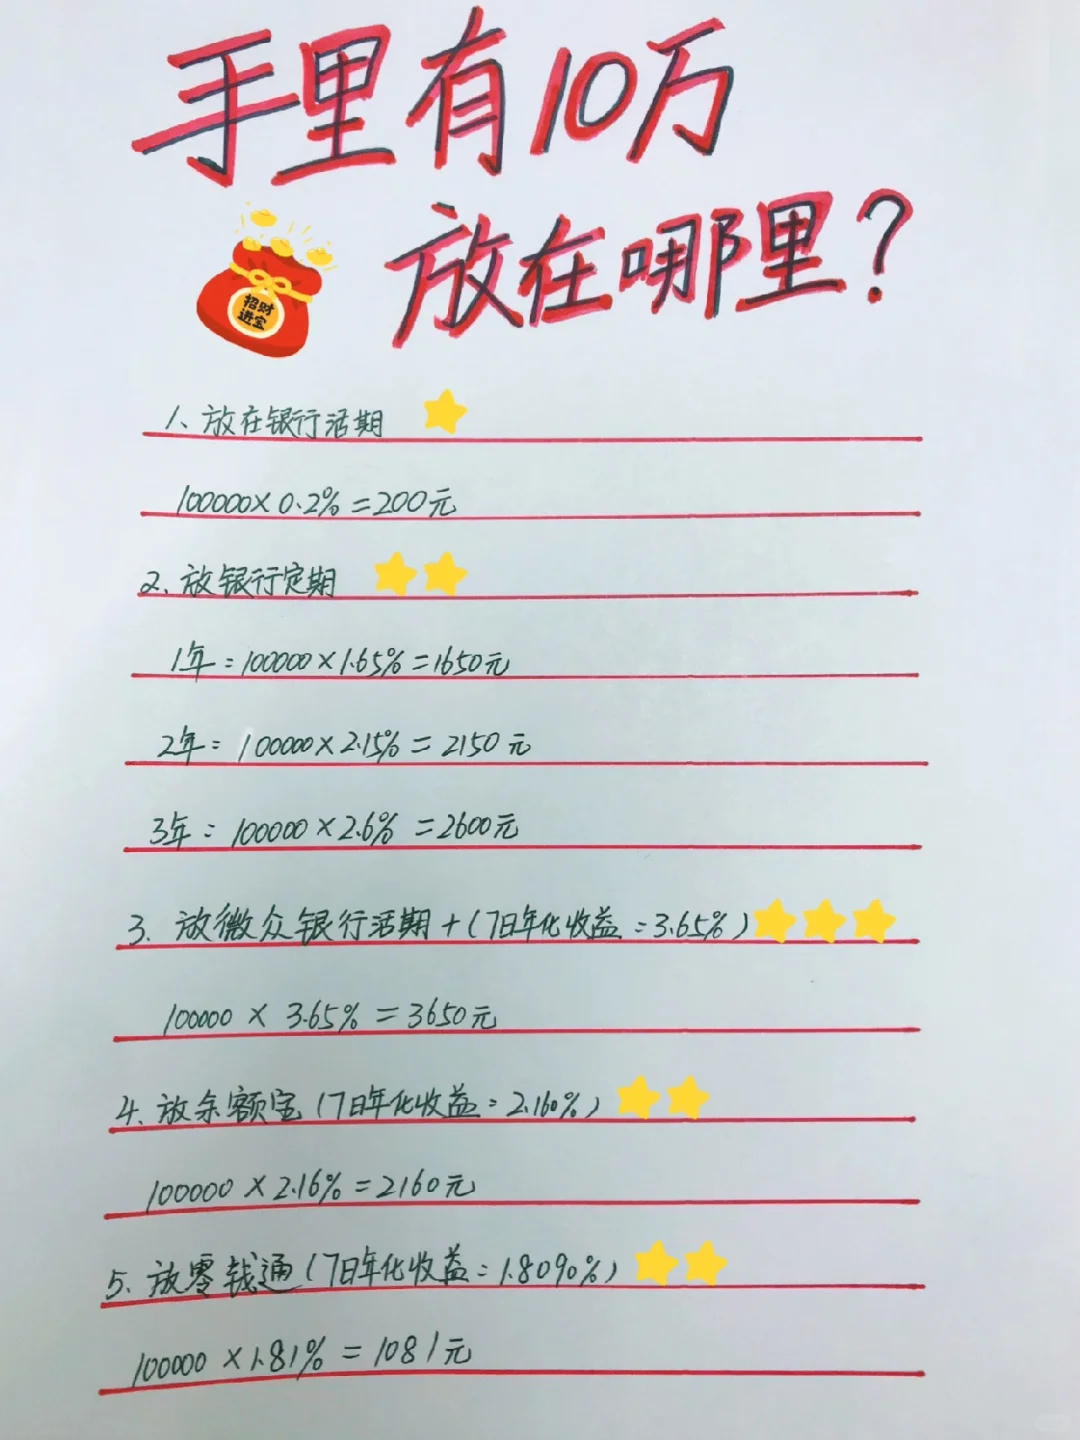 手里有10万
放在哪里？
招财
进宝
1、放在银行活期
100000×0.2%=200元
2、放银行定期
1年：100000×1.65%=1650元
2年：100000×2.15%=2150元
3年：100000×2.6%=2600元
3、放微众银行活期+(7日年化收益：3.65%)
100000×3.65%=3650元
4、放余额宝(7日年化收益：2.160%)
100000×2.16%=2160元
5、放零钱通(7日年化收益：1.8090%)
100000×1.81%=1081元